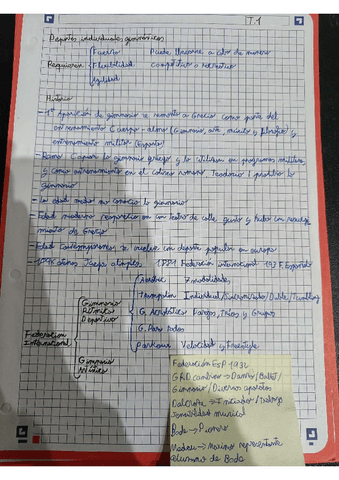 T.1
Deportes individuales gimnásticos
Fuerza Puede llevarse a cabo de manera
Requieren Flexibilidad competitiva o recreativa
Agilidad
Historia
- 1ª Aparición de gimnasia se remonta a Grecia como parte del
entrenamiento Cuerpo - alma (Gimnasia, arte, música y filosofía) y
entrenamiento militar (Esparta)
- Roma Copiar la gimnasia griega y la utilizan en programas militares
y como entrenamiento en el coliseo romano Teodorico I prohibe la
gimnasia
- La edad media no conocía la gimnasia
- Edad moderna en teatro de calle, y
miento de Grecia
- Edad Contemporánea se vuelve un deporte popular en europa
- 1896 Juegos olímpicos 1881 Federación internacional 1932 F. Española
Aeróbic 7 modalidades
Gimnasia Trampolín Individual/Sincronizado/Doble/Tumbling
Rítmica
Deportiva G. Acrobática Parejas, Tríos y Grupos
Federación G. Para todos
Internacional Parkour Velocidad y Freestyle
Gimnasia
Federación ESP 1932
GRD cambios → Danza/Ballet/
Gimnasia/Diversos aparatos
Dalcroze → Iniciador/
musical
Bode → Pionero
Medau → Máximo representante
alumno de Bode